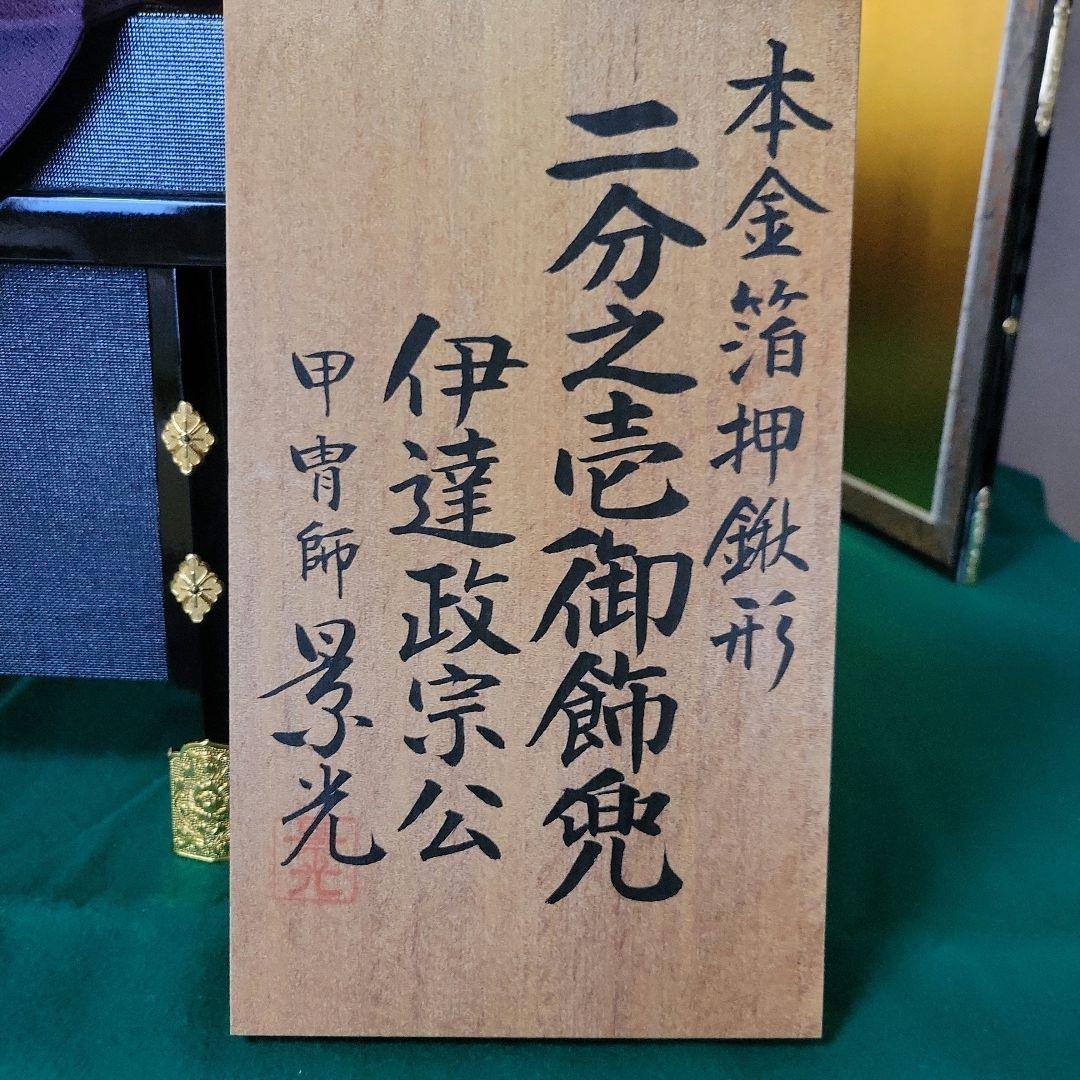 本金箔押鍬形
二分之壱御飾兜
伊達政宗公
甲冑師 景光
景光